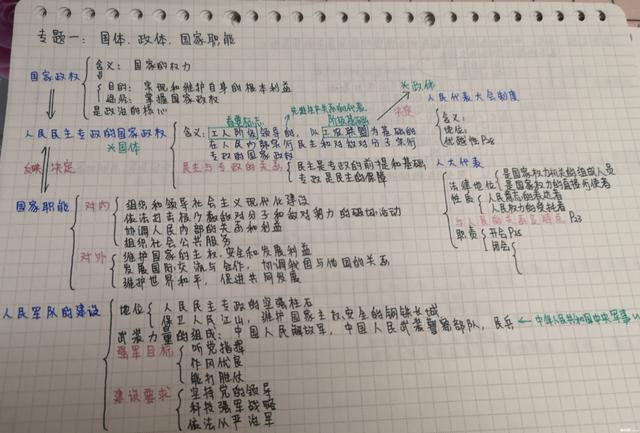 专题一：国体、政体、国家职能
国家政权
含义：国家的权力
目的：实现和维护自身的根本利益
途径：掌握国家政权
是政治的核心
人民民主专政的国家政权
*国体
含义：工人阶级领导的，以工农联盟为基础的
在人民内部实行民主和对敌对分子实行
专政的国家政权
阶级基础
民主与专政的关系
民主是专政的前提和基础
专政是民主的保障
决定
*政体
人民代表大会制度
含义：
地位：
优越性P28
人大代表
法律地位
是国家权力机关的组成人员
是国家权力的直接行使者
性质
人民意志的表达者
人民权力的受托者
与人民的关系 P23
职责
开会P25
闭会
反映 决定
国家职能
对内
组织和领导社会主义现代化建设
依法打击极少数敌对分子和敌对势力的破坏活动
协调人民内部的关系和利益
组织社会公共服务
对外
维护国家的主权、安全和发展利益
发展国际交流与合作，协调我国与他国的关系
维护世界和平，促进共同发展
人民军队的建设
地位
人民民主专政的坚强柱石
保卫人民江山，维护国家主权、安全的钢铁长城
武装力量的组成：中国人民解放军，中国人民武装警察部队，民兵
←中华人民共和国中央军事
强军目标
听党指挥
作风优良
能打胜仗
建设要求
坚持党的领导
科技强军战略
依法从严治军